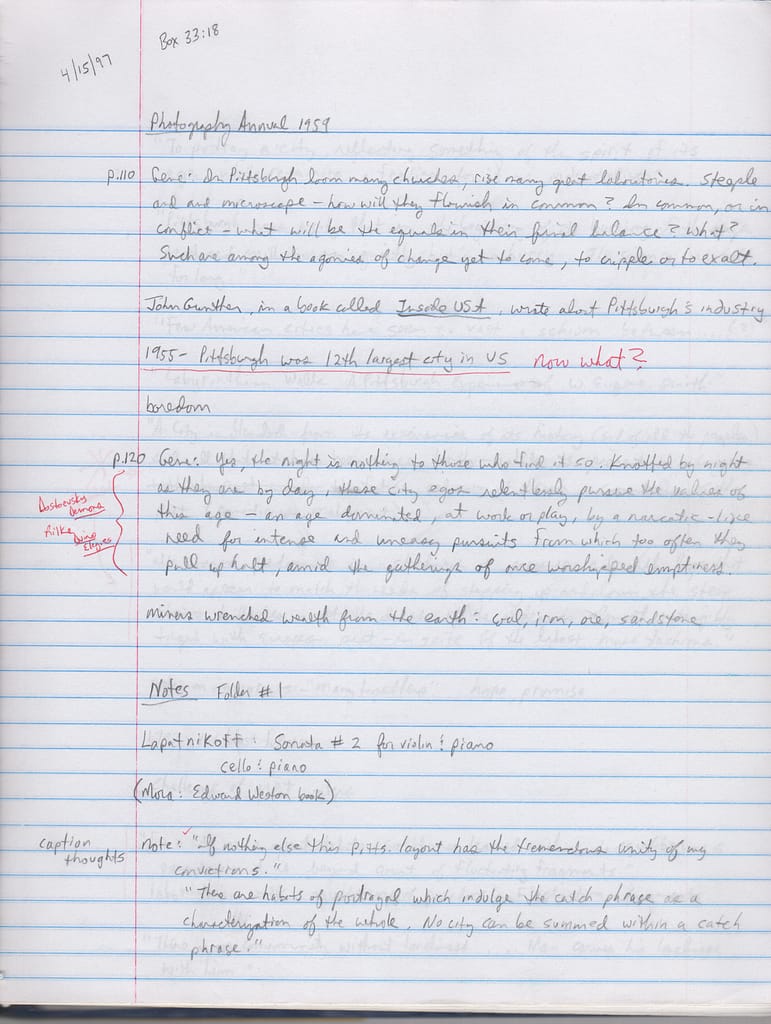 Box 33:18
4/15/97
Photography Annual 1959
p.110 Gene: In Pittsburgh loom many churches, rise many great laboratories. Steeple
and and microscope – how will they flourish in common? In common, or in
conflict – what will be the equals in their final balance? What?
Such are among the agonies of change yet to come, to cripple or to exalt.
John Gunther, in a book called Inside USA, wrote about Pittsburgh's industry
1955 – Pittsburgh was 12th largest city in US now what?
boredom
p.120 Gene: Yes, the night is nothing to those who find it so. Knotted by night
as they are by day, these city egos relentlessly pursue the values of
Dostoevsky Demons
this age – an age dominated, at work or play, by a narcotic-like
Rilke Duino Elegies
need for intense and uneasy pursuits from which too often they
pull up halt, amid the gatherings of once worshipped emptiness.
miners wrenched wealth from the earth: coal, iron, ore, sandstone
Notes Folder #1
Lopatnikoff: Sonata #2 for violin & piano
cello & piano
(Mora: Edward Weston book)
caption thoughts
note: "If nothing else this Pitts. layout has the tremendous unity of my
convictions."
"There are habits of portrayal which indulge the catch phrase as a
characterization of the whole. No city can be summed within a catch
phrase."